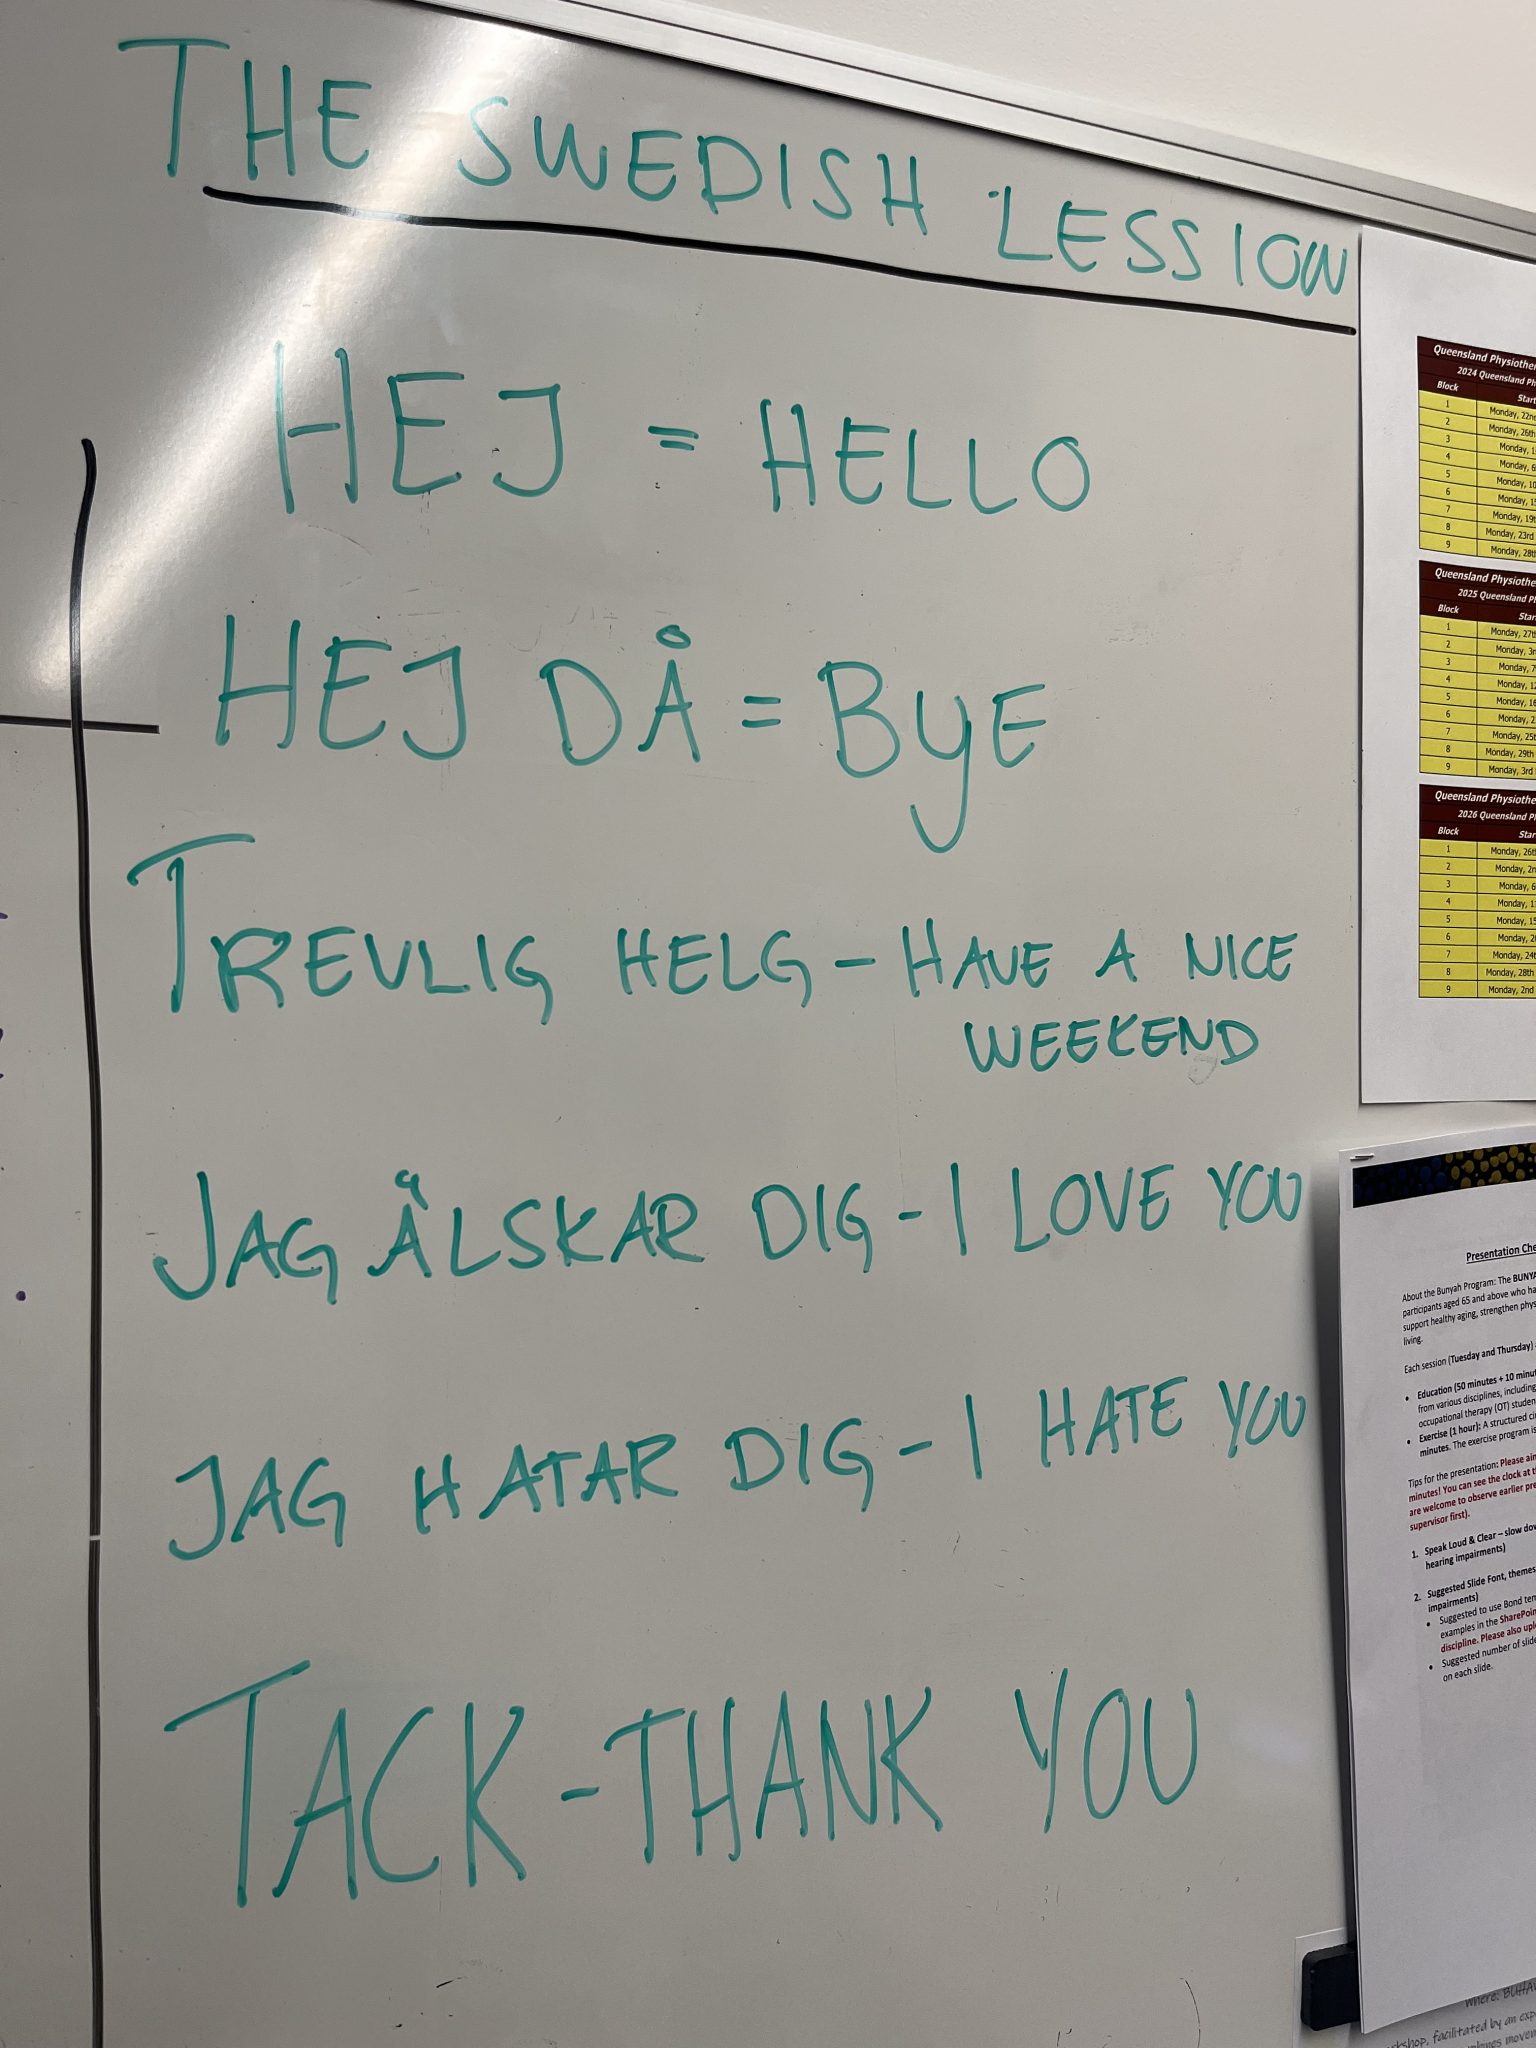 THE SWEDISH LESSION
HEJ = HELLO
HEJ DÅ = BYE
TREVLIG HELG - HAVE A NICE
WEEKEND
JAG ÅLSKAR DIG - I LOVE YOU
JAG HATAR DIG - I HATE YOU
TACK - THANK YOU
Queensland Physiothe
2024 Queensland Ph
Block Star
1 Monday, 22n
2 Monday, 26th
3 Monday, 1
4 Monday, 6
5 Monday, 10
6 Monday, 15
7 Monday, 19t
8 Monday, 23rd
9 Monday, 28t
Queensland Physiothe
2025 Queensland Ph
Block Star
1 Monday, 27t
2 Monday, 3r
3 Monday, 7
4 Monday, 12
5 Monday, 16
6 Monday, 2
7 Monday, 25t
8 Monday, 29th
9 Monday, 3rd
Queensland Physiothe
2026 Queensland Ph
Block Star
1 Monday, 26t
2 Monday, 2n
3 Monday, 6
4 Monday, 1
5 Monday, 15
6 Monday, 2
7 Monday, 24t
8 Monday, 28th
9 Monday, 2nd
Presentation Che
About the Bunyah Program: The BUNYA
participants aged 65 and above who ha
support healthy aging, strengthen phys
living.
Each session (Tuesday and Thursday)
• Education (50 minutes + 10 minut
from various disciplines, including
occupational therapy (OT) studen
• Exercise (1 hour): A structured ci
minutes. The exercise program is
Tips for the presentation: Please aim
minutes! You can see the clock at th
are welcome to observe earlier pre
supervisor first).
1. Speak Loud & Clear – slow dow
hearing impairments)
2. Suggested Slide Font, themes
impairments)
• Suggested to use Bond tem
examples in the SharePoin
discipline. Please also uplo
• Suggested number of slide
on each slide.
Where: BUHA
kshop, facilitated by an exp
mbines movem